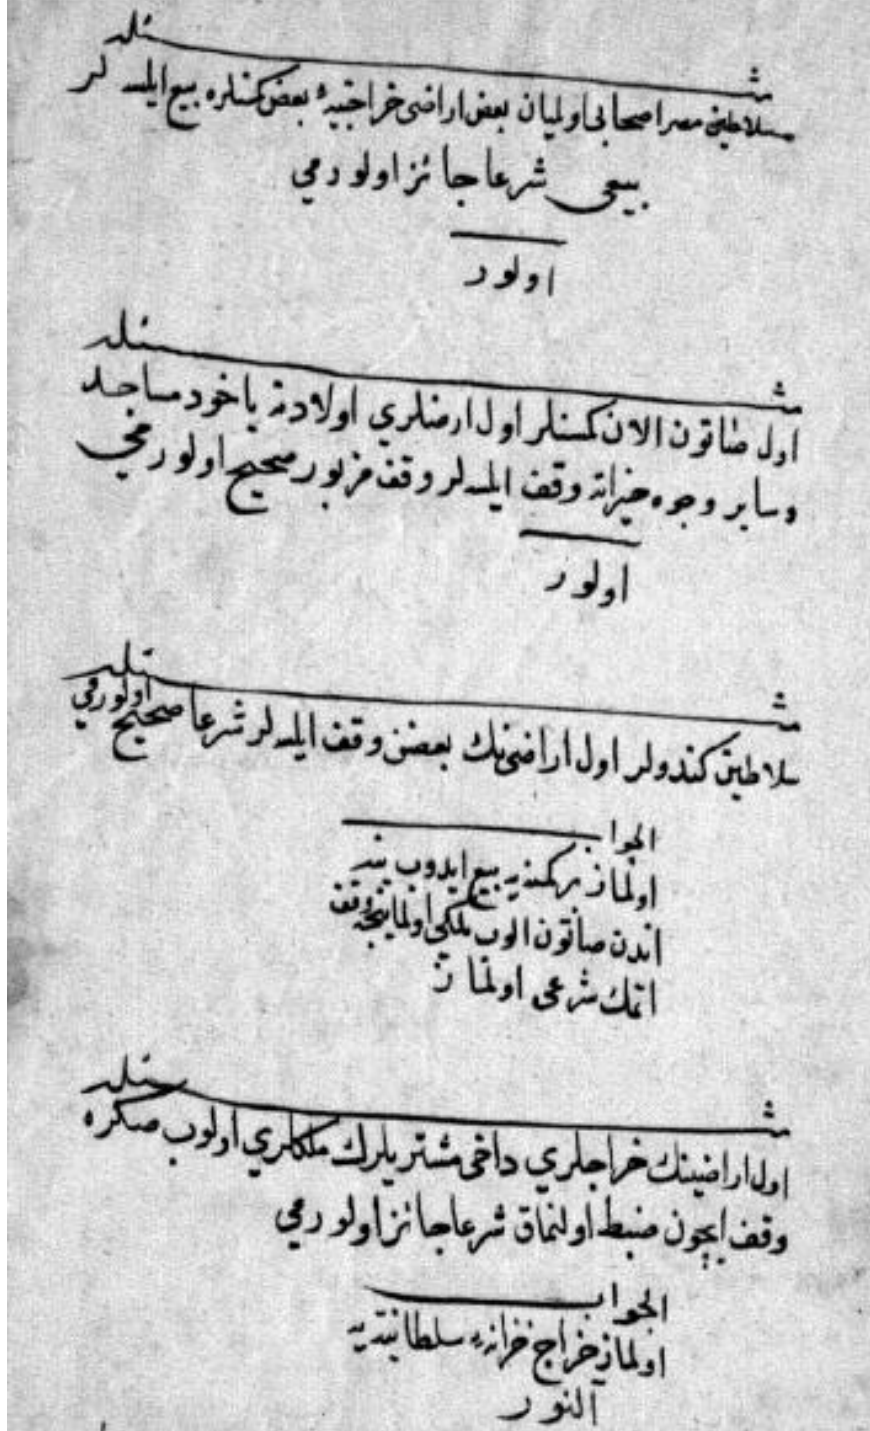 مسئله
سلاطين مصر اصحابى اولميان بعض اراضى خراجيه‌ء بعض كمسنلره بيع ايلسه لر
بيعى شرعا جائز اولورمي
اولور
مسئله
اول صاتون الان كمسنلر اول ارضلري اولادنه ياخود مساجد
و ساير وجوه خيراته وقف ايلسه لر وقف مزبور صحيح اولورمي
اولور
مسئله
سلاطين كندولر اول اراضى نك بعضن وقف ايلسه لر شرعا صحيح اولورمي
الجواب
اولماز بر كمسنه يه بيع ايدوب ينه
اندن صاتون الوب ملكى اولماينجه وقف
اتمك شرعى اولماز
مسئله
اول اراضينك خراجلري داخى مشتريلرك ملكلري اولوب صكره
وقف ايچون ضبط اولنماق شرعا جائز اولورمي
الجواب
اولماز خراج خزانهء سلطانيه يه
النور